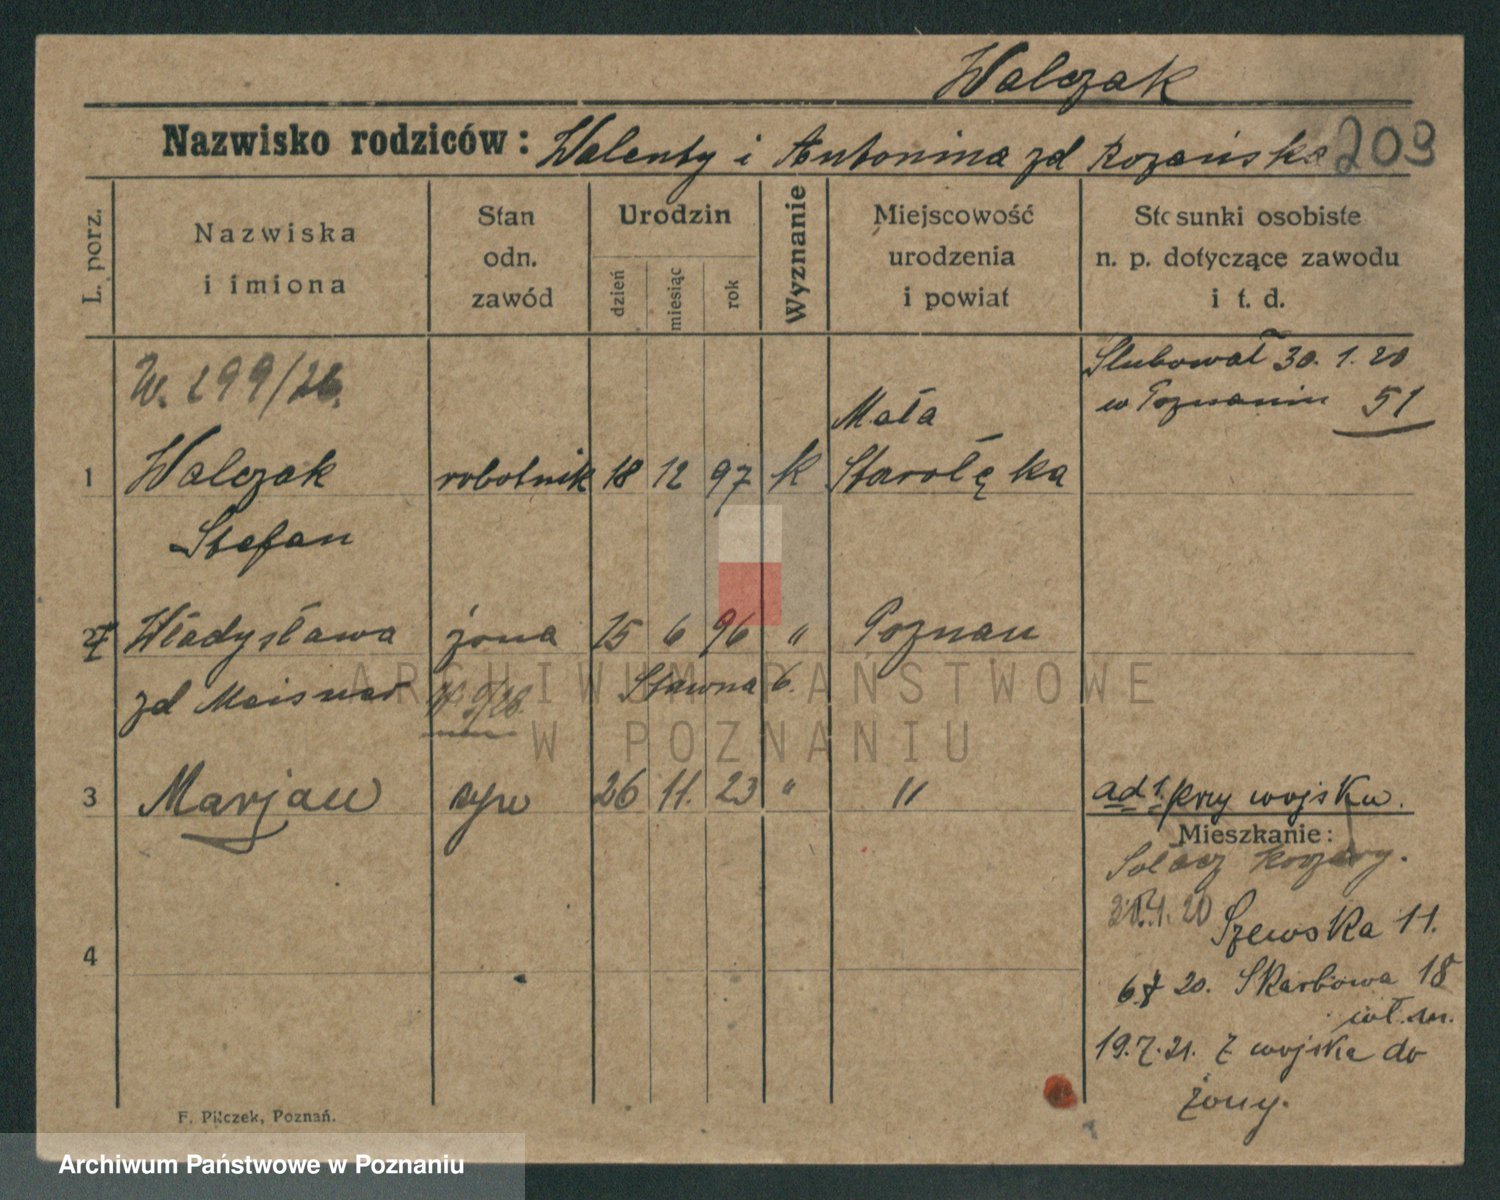 Walczak
Nazwisko rodziców: Walenty i Antonina zd Rozańska 209
L. porz.
Nazwiska i imiona
Stan odn. zawód
Urodzin
dzień miesiąc rok
Wyznanie
Miejscowość urodzenia i powiat
Stosunki osobiste n. p. dotyczące zawodu i t. d.
W. 299/26.
Slubował 30. 1. 20
w Poznaniu 51
Mała
1 Walczak robotnik 18 12 97 k Starołęka
Stefan
2 Władysława żona 15 6 96 " Poznań
zd Sławna 6.
3 Marjan syn 26 11. 23 " "
ad 1. przy wojsku.
Mieszkanie:
Sołacz koszary.
Szewska 11.
4
6.7 20. Skarbowa 18
wł. m.
19.7.21. z wojska do
żony.
F. Pilczek, Poznań.
ARCHIWUM PAŃSTWOWE
W POZNANIU
Archiwum Państwowe w Poznaniu